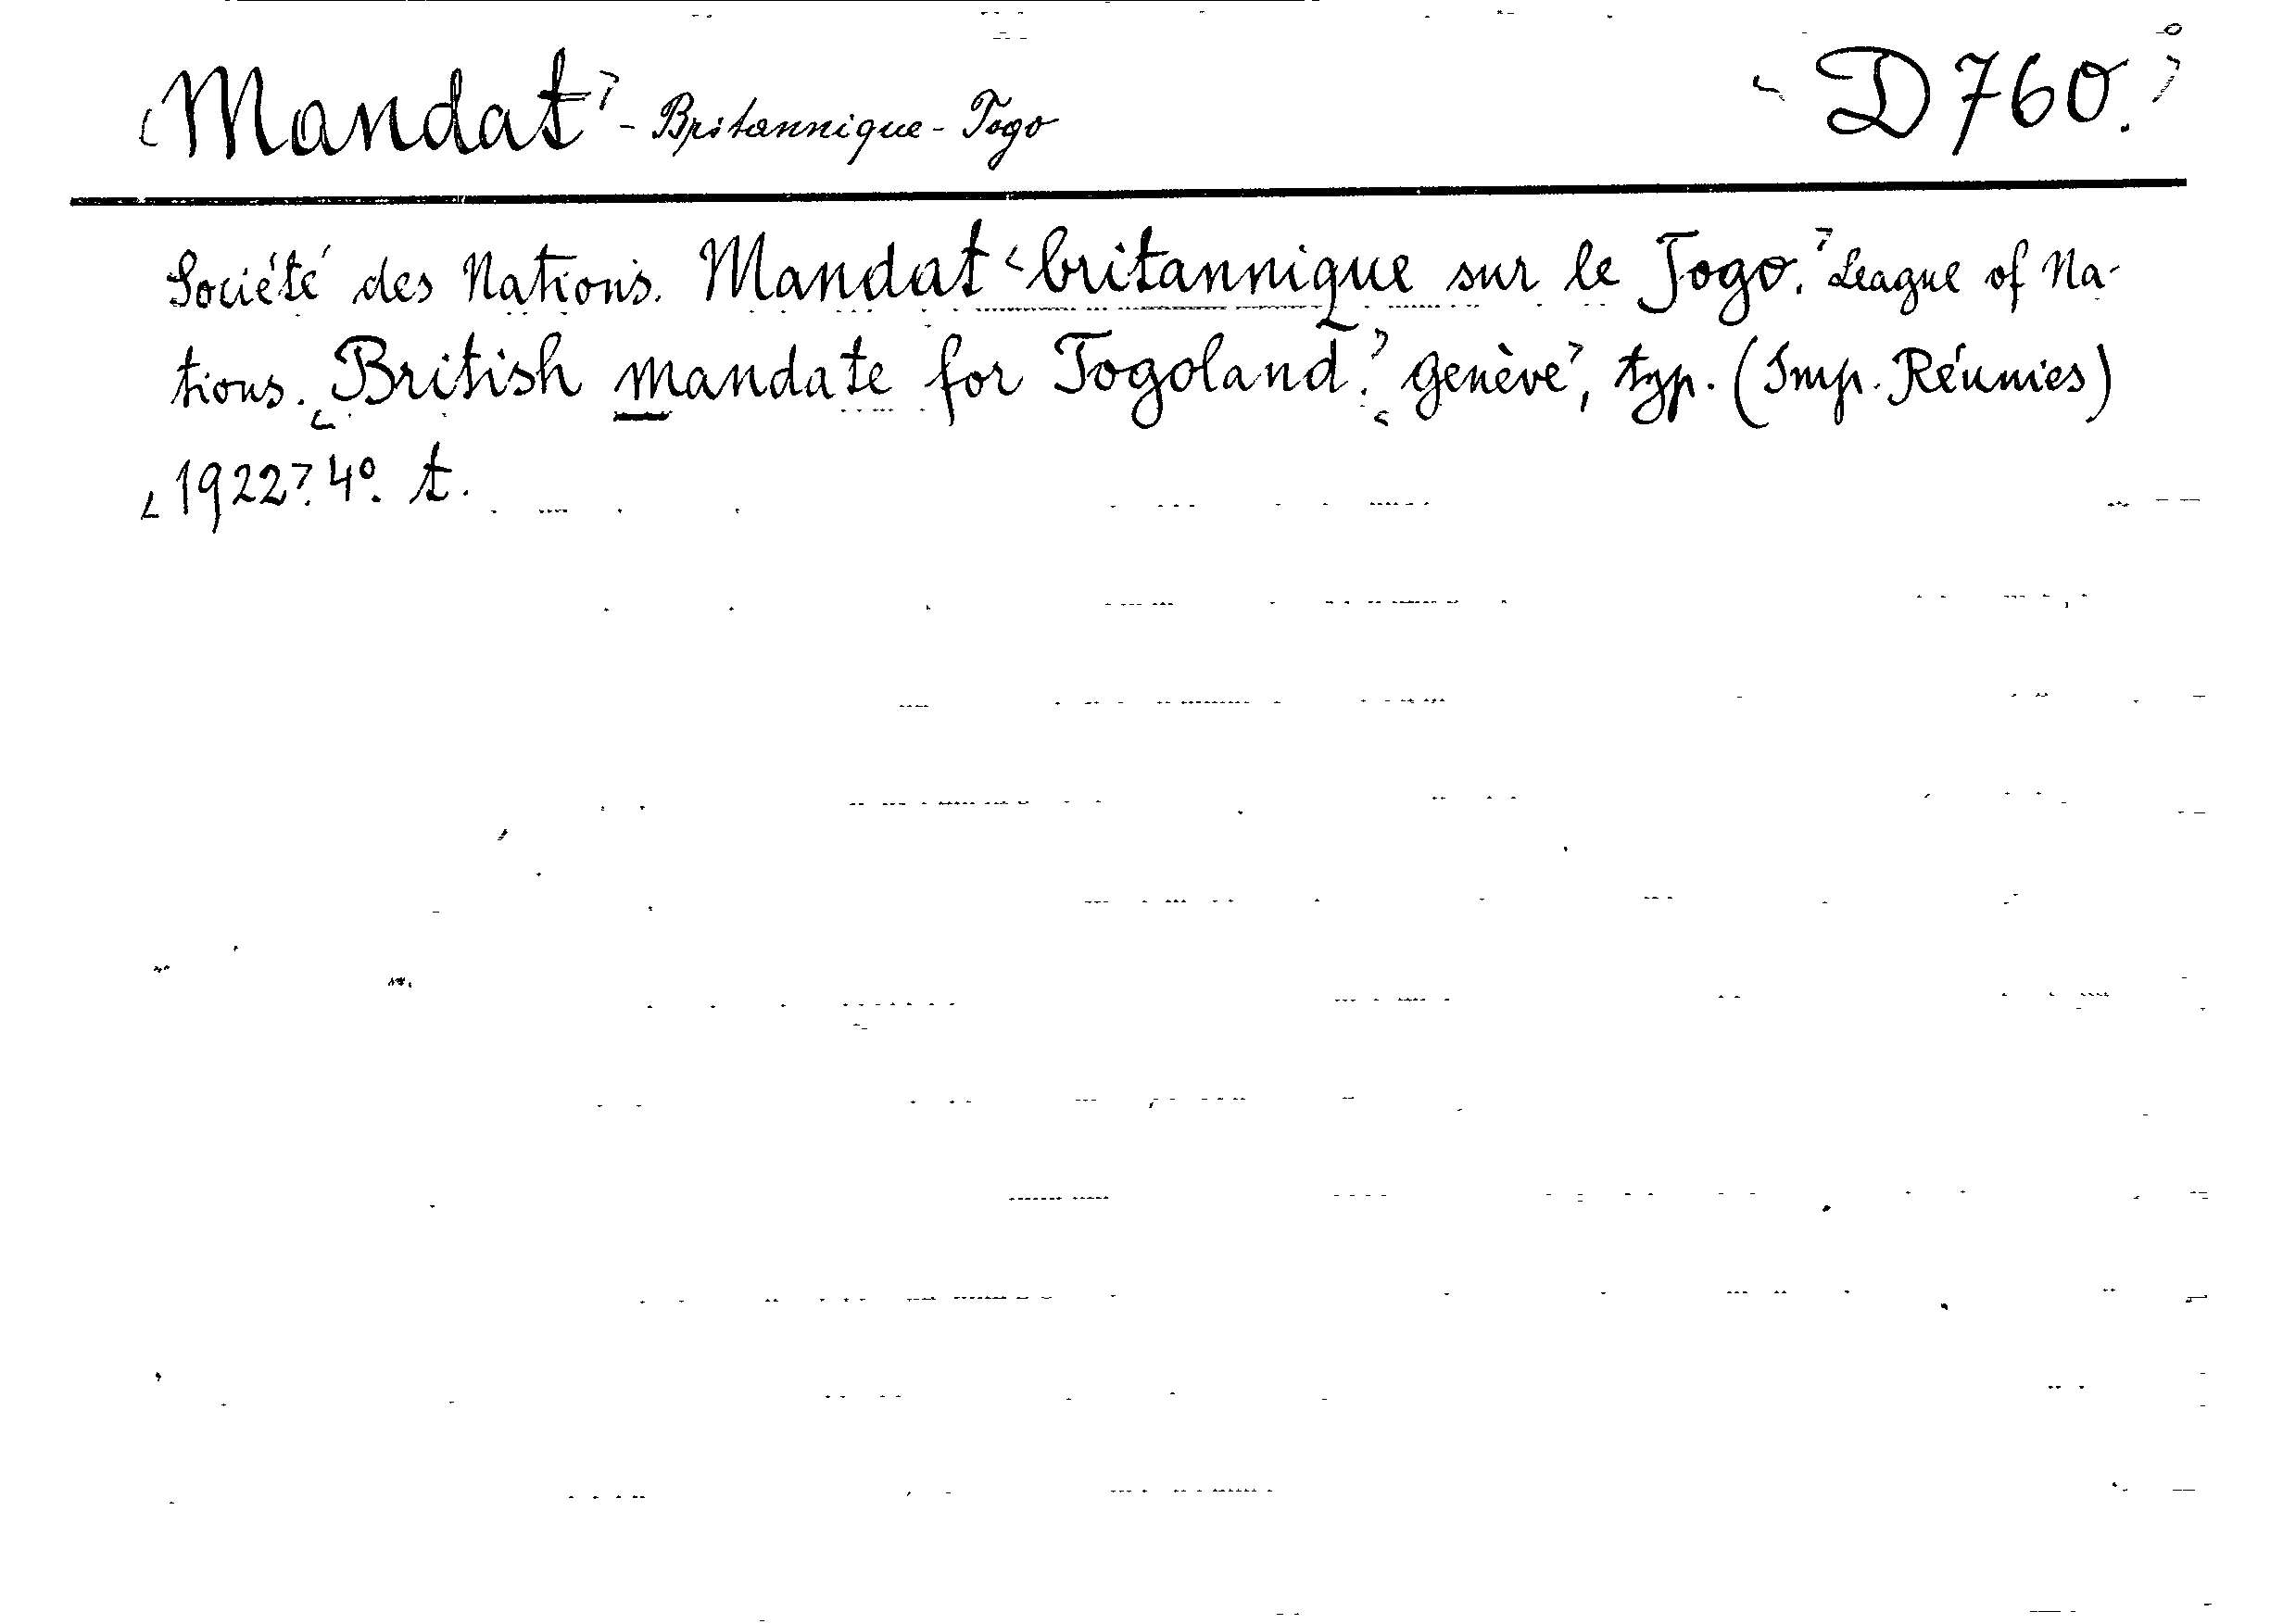 Mandat - Britannique - Togo D 760.
Société des Nations. Mandat britannique sur le Togo. League of Na-
tions. British mandate for Togoland. Genève, typ. (Imp. Réunies)
1922. 4º. t.